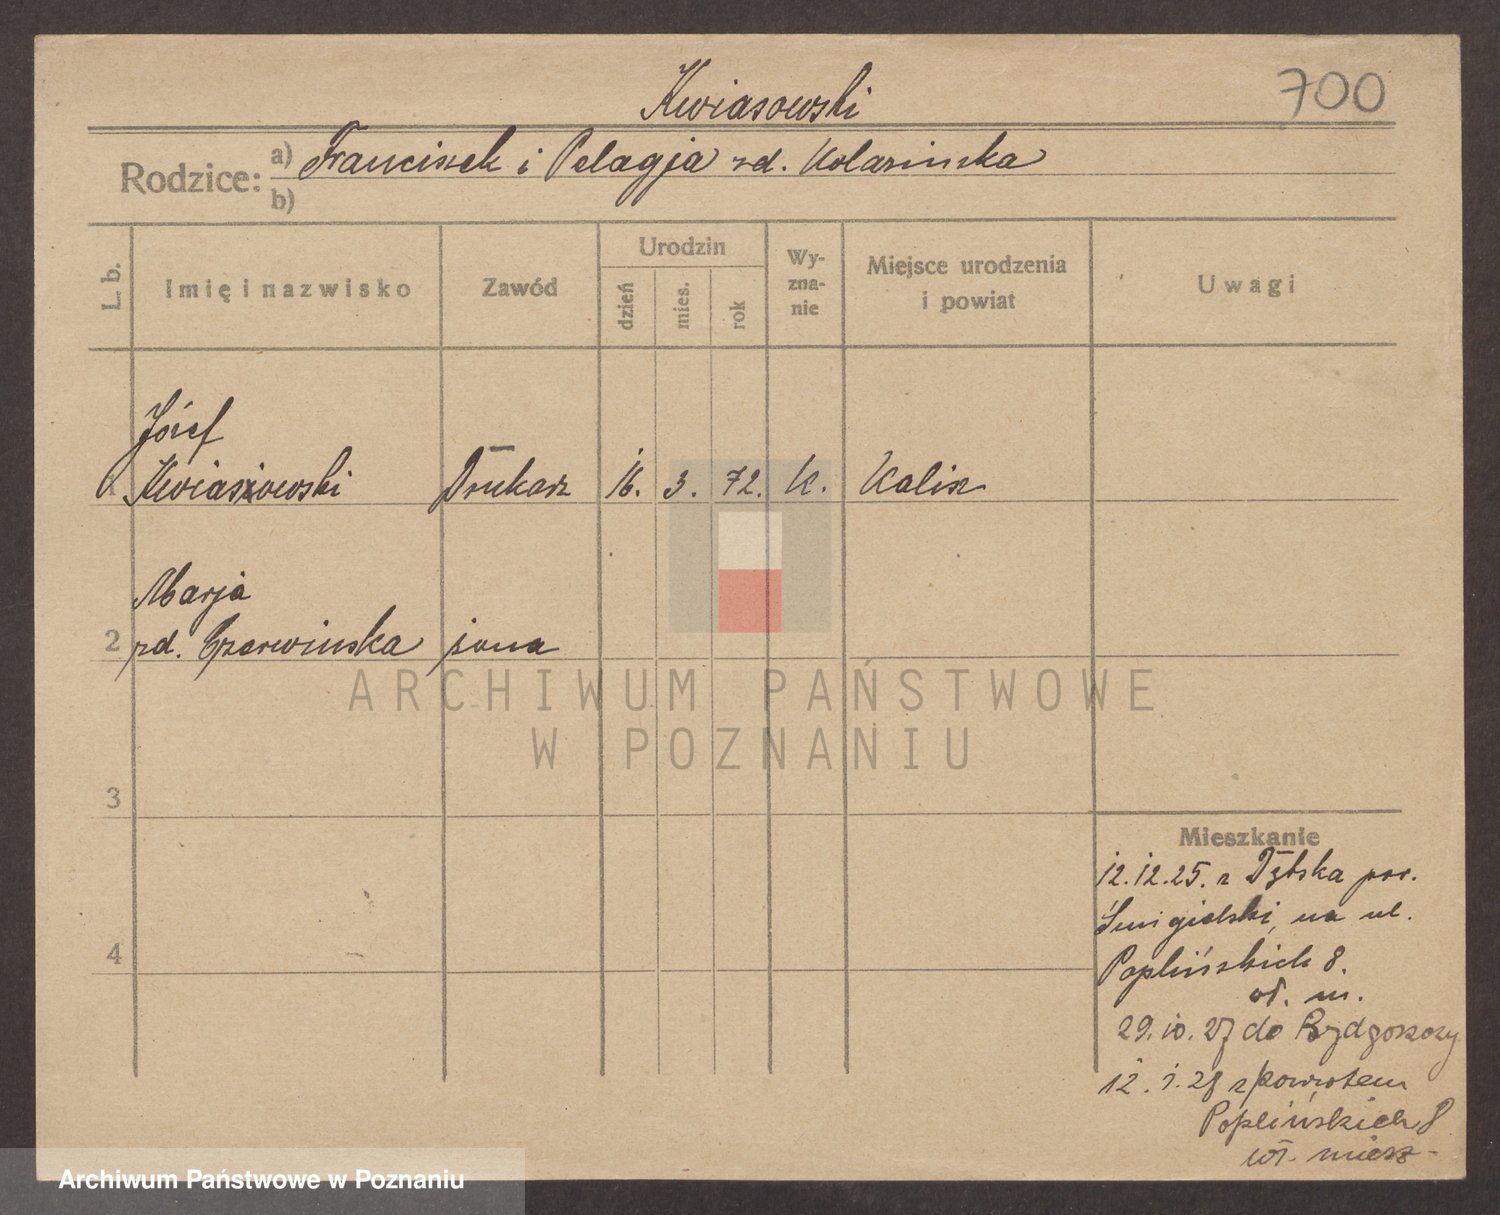 Kwiasowski
700
Rodzice: a) Franciszek i Pelagja zd. Kolasinska
b)
L. b.
Imię i nazwisko
Zawód
Urodzin
dzień
mies.
rok
Wy-
zna-
nie
Miejsce urodzenia
i powiat
Uwagi
Józef
1 Kwiasowski Drukarz 16. 3. 72. K. Kalisz
Marja
2 zd. Czerwinska żona
ARCHIWUM PAŃSTWOWE
W POZNANIU
3
4
Mieszkanie
12.12.25. z pow.
Śmigielski, na ul.
Poplińskich 8.
wł. m.
29.10.27 do Bydgoszczy
12.1.28 z powrotem
Poplińskich 8
wł. miesz-
Archiwum Państwowe w Poznaniu